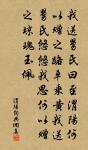 我送舅氏曰至渭陽何
以贈之路車乘黃我送
舅氏悠悠我思何以贈
之瓊瑰玉佩
渭陽